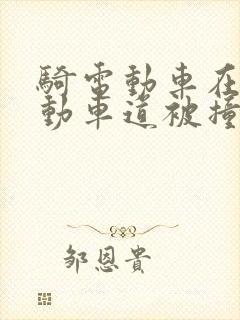 騎電動車在
動車道被撞
鄒恩貴